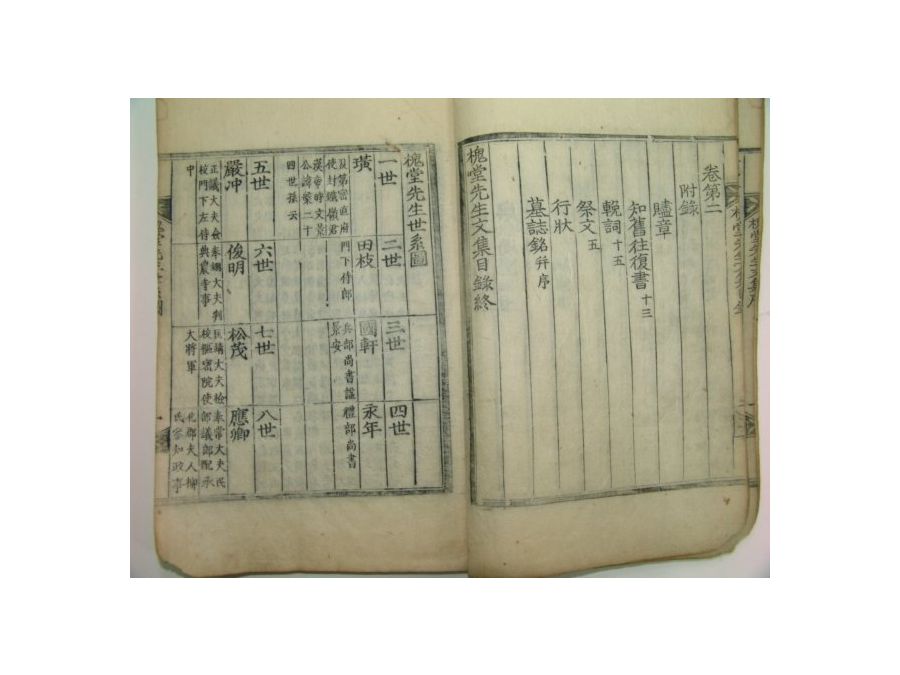 卷第二
附錄
贐章
知舊往復書 十三
輓詞 十五
祭文 五
行狀
墓誌銘 并序
槐堂先生文集目錄終
槐堂先生世系圖
一世
璜
及第密直府
使封鐵嶺君
漢帝時文景
公諱榮二十
四世孫云
二世
田枝
門下侍郎
三世
國軒
兵部尚書諡
景安
四世
永年
禮部尚書
五世
嚴冲
正議大夫檢
校門下左侍
中
六世
俊明
奉翊大夫判
典農寺事
七世
松茂
匡靖大夫檢
校樞密院使
大將軍
八世
應卿
奉常大夫民
部議郎配承
化郡夫人柳
氏參知政事